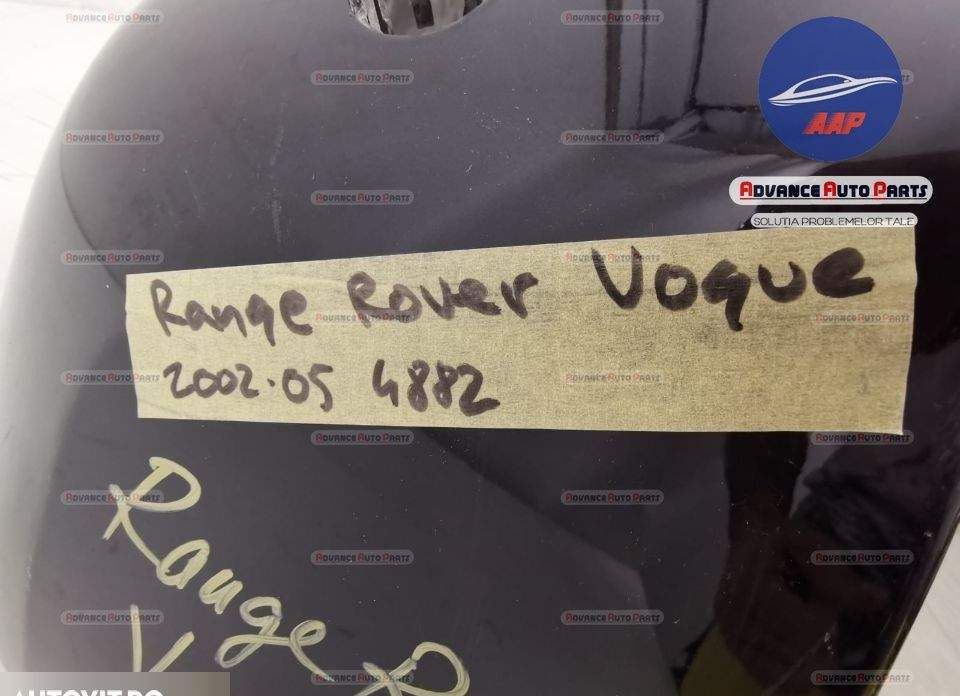 AAP
ADVANCE AUTO PARTS
SOLUTIA PROBLEMELOR TALE
Range Rover Vogue
2002.05 4882
Range R
V
AUTOVIT.RO